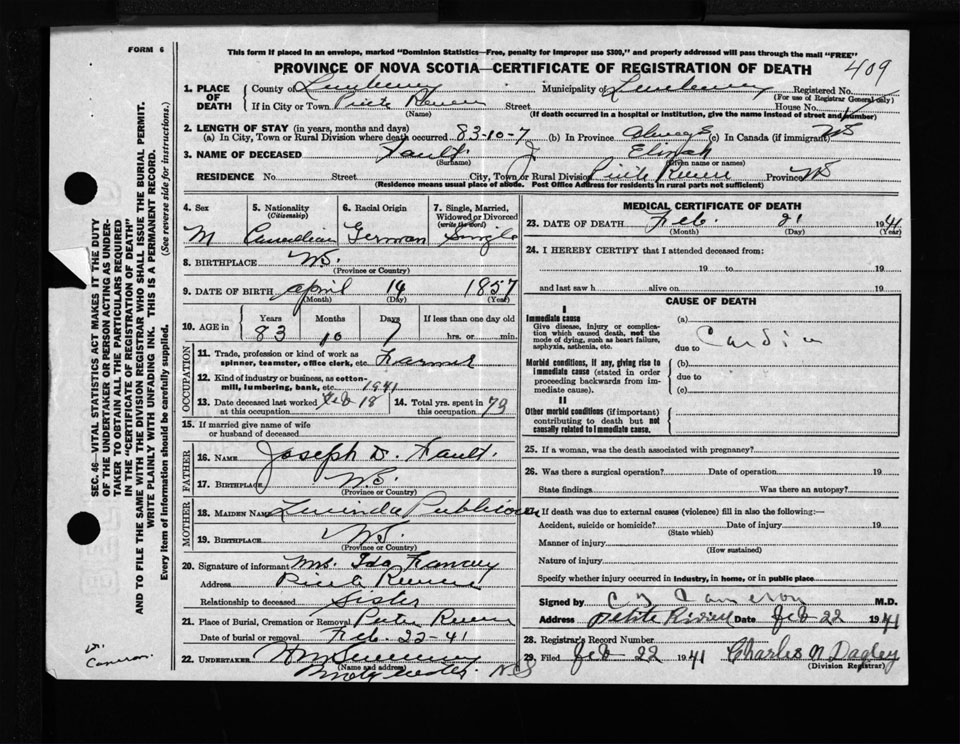 FORM 6
This form if placed in an envelope, marked "Dominion Statistics—Free, penalty for improper use $300," and properly addressed will pass through the mail "FREE"
PROVINCE OF NOVA SCOTIA—CERTIFICATE OF REGISTRATION OF DEATH
409
1. PLACE OF DEATH
County of Lunenburg Municipality of Lunenburg Registered No.
(For use of Registrar General only)
If in City or Town Street House No.
(Name) (If death occurred in a hospital or institution, give the name instead of street and number)
2. LENGTH OF STAY (in years, months and days)
(a) In City, Town or Rural Division where death occurred 83-10-7 (b) In Province Always (c) In Canada (if immigrant) NS
3. NAME OF DECEASED J Elijah
(Surname) (Given name or names)
RESIDENCE No. Street City, Town or Rural Division Province NS
(Residence means usual place of abode. Post Office Address for residents in rural parts not sufficient)
4. Sex 5. Nationality (Citizenship) 6. Racial Origin 7. Single, Married, Widowed or Divorced (write the word)
M Canadian German Single
8. BIRTHPLACE N.S.
(Province or Country)
9. DATE OF BIRTH April 14 1857
(Month) (Day) (Year)
10. AGE in Years Months Days If less than one day old
83 10 7 hrs. or min.
OCCUPATION
11. Trade, profession or kind of work as spinner, teamster, office clerk, etc. Farmer
12. Kind of industry or business, as cotton-mill, lumbering, bank, etc.
1941
13. Date deceased last worked at this occupation Feb 18 14. Total yrs. spent in this occupation 79
15. If married give name of wife or husband of deceased
FATHER
16. NAME Joseph D.
17. BIRTHPLACE N.S.
(Province or Country)
MOTHER
18. MAIDEN NAME Lucinda Publicover
19. BIRTHPLACE N.S.
(Province or Country)
20. Signature of informant Mrs. Ida
Address
Relationship to deceased Sister
21. Place of Burial, Cremation or Removal
Date of burial or removal Feb. 22-41
22. UNDERTAKER
(Name and address) N.S
MEDICAL CERTIFICATE OF DEATH
23. DATE OF DEATH Feb. 21 1941
(Month) (Day) (Year)
24. I HEREBY CERTIFY that I attended deceased from:
19 to 19
and last saw h alive on 19
CAUSE OF DEATH
I
Immediate cause (a)
Give disease, injury or complication which caused death, not the mode of dying, such as heart failure, asphyxia, asthenia, etc.
due to
Morbid conditions, if any, giving rise to immediate cause (stated in order proceeding backwards from immediate cause).
(b)
due to
(c)
II
Other morbid conditions (if important) contributing to death but not causally related to immediate cause.
25. If a woman, was the death associated with pregnancy?
26. Was there a surgical operation? Date of operation 19
State findings Was there an autopsy?
27. If death was due to external causes (violence) fill in also the following:—
Accident, suicide or homicide? Date of injury 19
(State which)
Manner of injury
(How sustained)
Nature of injury
Specify whether injury occurred in industry, in home, or in public place
Signed by Cameron M.D.
Address Petite Riviere Date Feb 22 1941
28. Registrar's Record Number
29. Filed Feb 22 1941 Charles N Dagley
(Division Registrar)
SEC. 46—VITAL STATISTICS ACT MAKES IT THE DUTY
OF THE UNDERTAKER OR PERSON ACTING AS UNDER-
TAKER TO OBTAIN ALL THE PARTICULARS REQUIRED
IN THE "CERTIFICATE OF REGISTRATION OF DEATH"
AND TO FILE THE SAME WITH THE DIVISION REGISTRAR WHO SHALL ISSUE THE BURIAL PERMIT.
WRITE PLAINLY WITH UNFADING INK. THIS IS A PERMANENT RECORD.
Every item of information should be carefully supplied. (See reverse side for instructions.)
Dr.
Cameron.